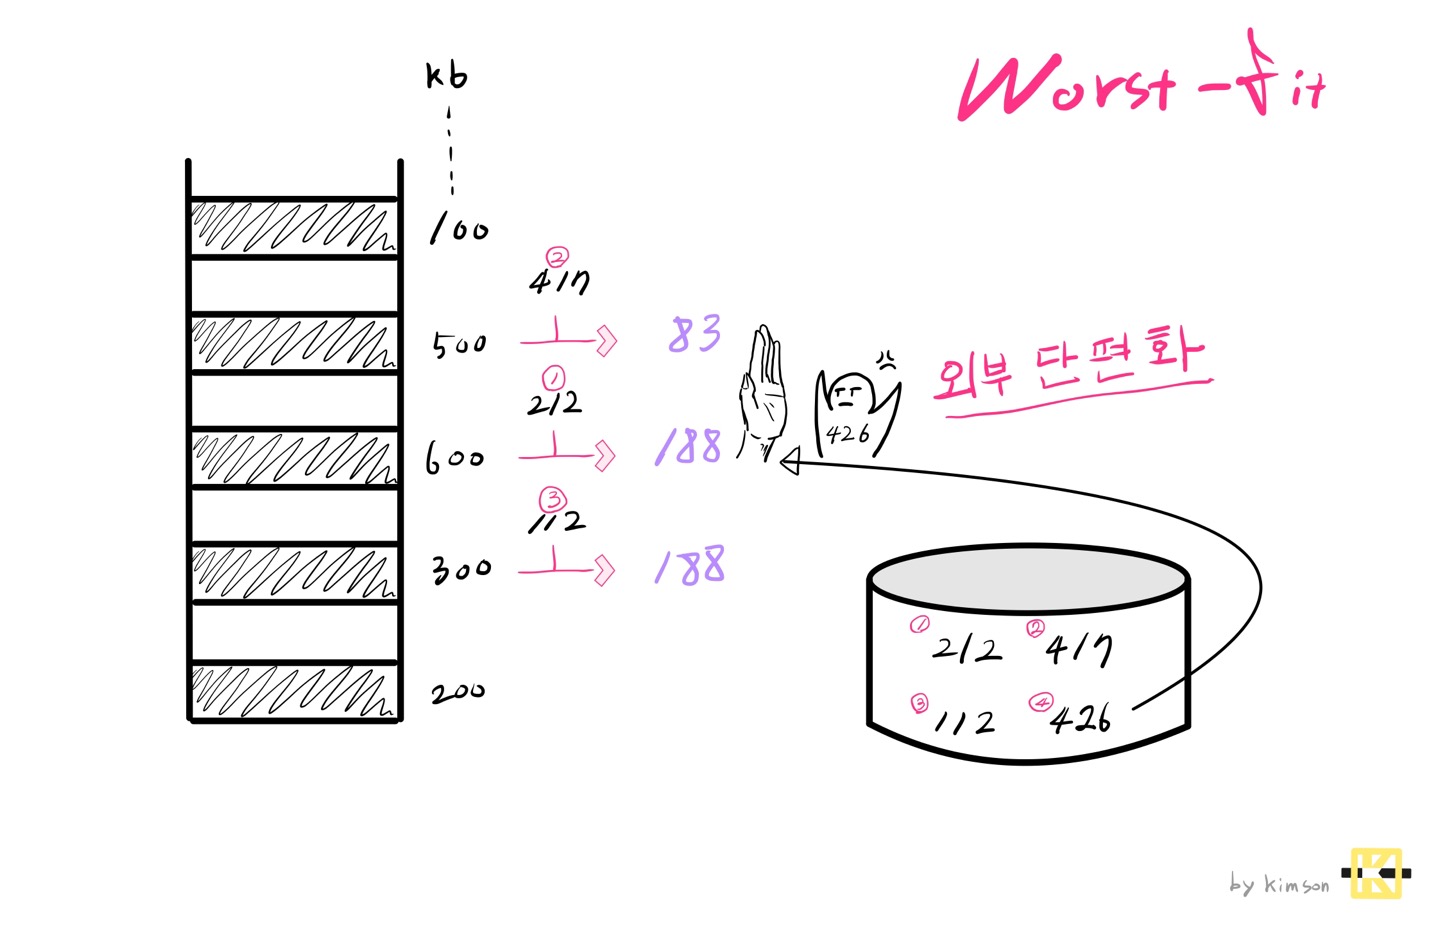 Worst-fit
kb
100
②
417
500 83
①
212
600 188
③
112
300 188
200
426
외부 단편화
① 212 ② 417
③ 112 ④ 426
by kimson
K